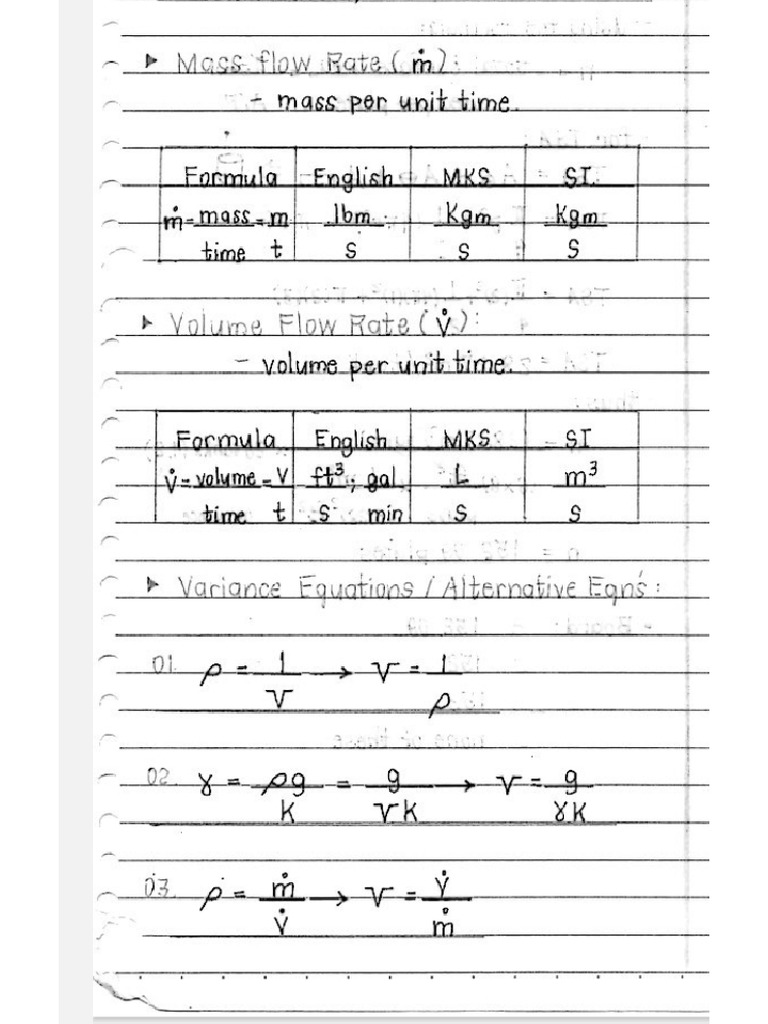 ▸ Mass flow Rate (ṁ):
- mass per unit time.
Formula English MKS SI
ṁ = mass/time = m/t lbm/s Kgm/s Kgm/s
▸ Volume Flow Rate (V̇):
- volume per unit time.
Formula English MKS SI
V̇ = volume/time = V/t ft³/s ; gal/min L/s m³/s
▸ Variance Equations / Alternative Eqn's :
01. ρ = 1/v → v = 1/ρ
02. γ = ρg/k = g/vk → v = g/γk
03. ρ = ṁ/V̇ → v = V̇/ṁ